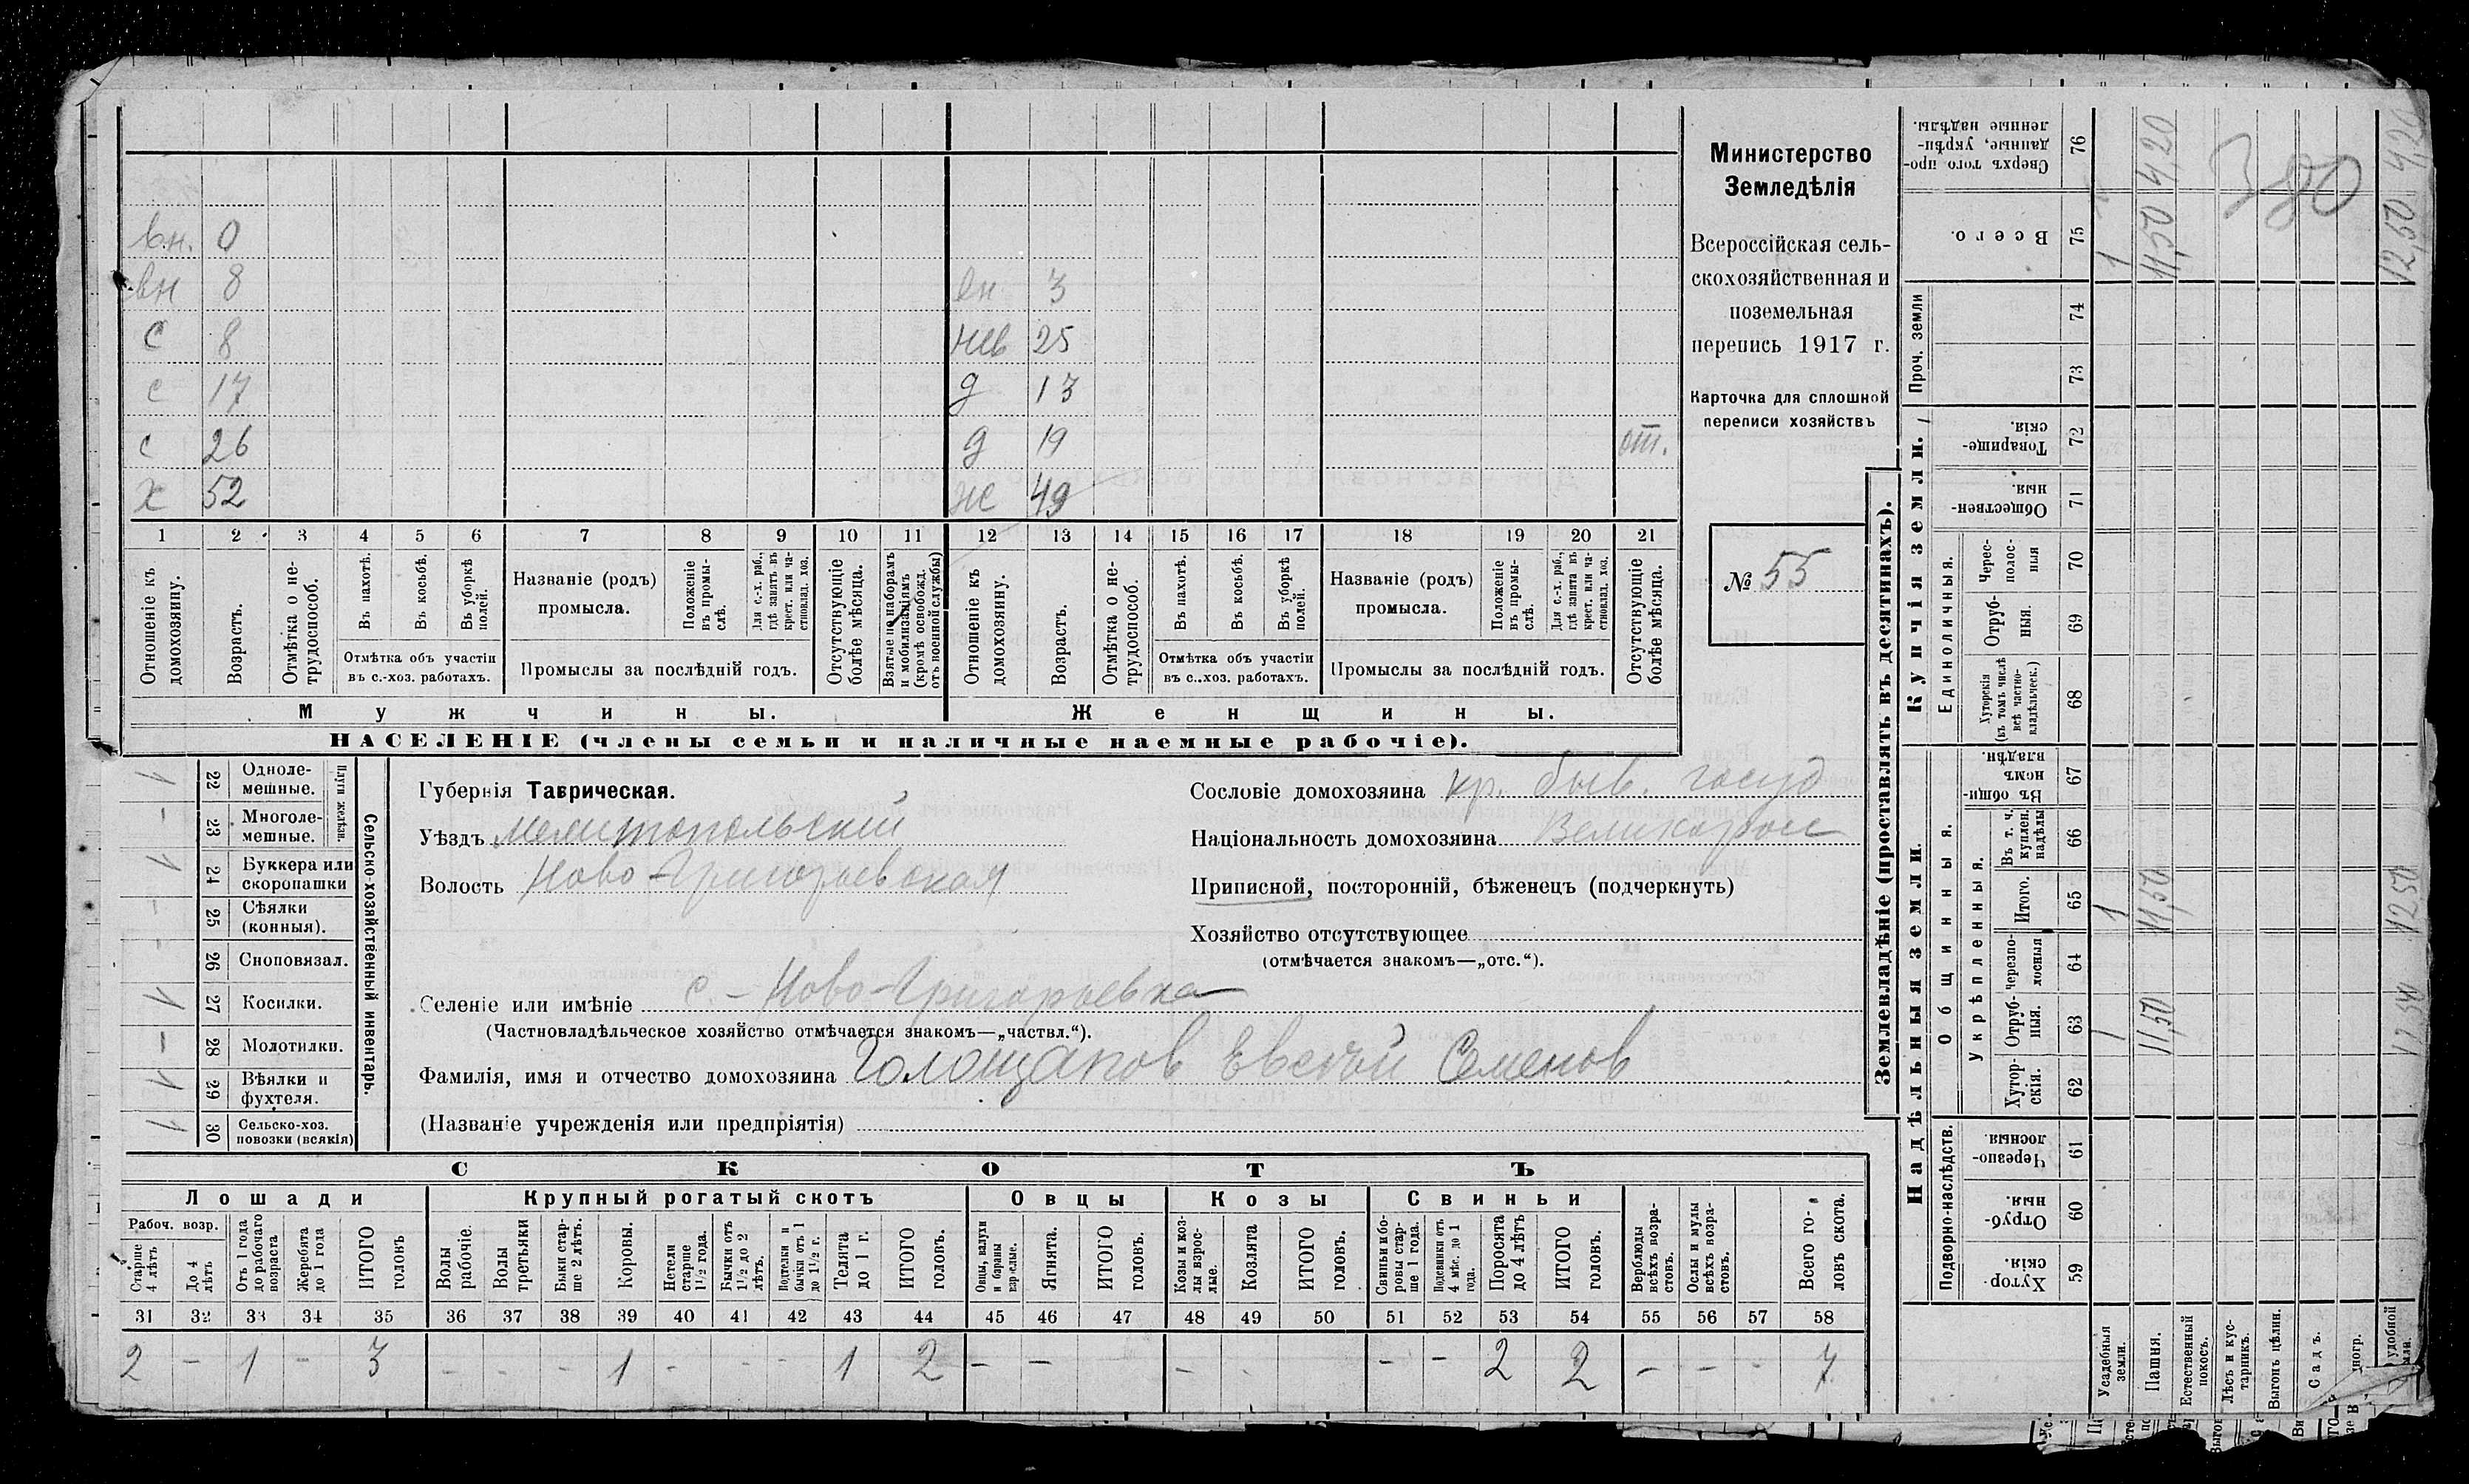 Министерство
Земледѣлія
Всероссійская сель-
скохозяйственная и
поземельная
перепись 1917 г.
Карточка для сплошной
переписи хозяйствъ
№ 55
вн. 0
вн 8 вн 3
с 8 нев 25
с 17 д 13
с 26 д 19 от.
х 52 ж 49
1 2 3 4 5 6 7 8 9 10 11 12 13 14 15 16 17 18 19 20 21
Отношеніе къ домохозяину.
Возрастъ.
Отмѣтка о не-трудоспособ.
Въ пахотѣ.
Въ косьбѣ.
Въ уборкѣ полей.
Отмѣтка объ участіи въ с.-хоз. работахъ.
Названіе (родъ) промысла.
Положеніе въ промы-слѣ.
Для с.-х. раб., гдѣ занятъ въ крест. или ча-стновлад. хоз.
Промыслы за послѣдній годъ.
Отсутствующіе болѣе мѣсяца.
Взятые по наборамъ и мобилизаціямъ (кромѣ освобожд. отъ военной службы)
Отношеніе къ домохозяину.
Возрастъ.
Отмѣтка о не-трудоспособ.
Въ пахотѣ.
Въ косьбѣ.
Въ уборкѣ полей.
Отмѣтка объ участіи въ с.-хоз. работахъ.
Названіе (родъ) промысла.
Положеніе въ промы-слѣ.
Для с.-х. раб., гдѣ занята въ крест. или ча-стновлад. хоз.
Промыслы за послѣдній годъ.
Отсутствующіе болѣе мѣсяца.
Мужчины. Женщины.
НАСЕЛЕНІЕ (члены семьи и наличные наемные рабочіе).
Сельско хозяйственный инвентарь.
Плуги желѣзн.
22 Одноле-мешные. 1
23 Многоле-мешные. –
24 Буккера или скоропашки 1
25 Сѣялки (конныя). –
26 Сноповязал. –
27 Косилки. 1
28 Молотилки. –
29 Вѣялки и фухтеля. 1
30 Сельско-хоз. повозки (всякія) 1
Губернія Таврическая.
Уѣздъ Мелитопольский
Волость Ново-Григорьевская
Сословіе домохозяина кр. быв. госуд
Національность домохозяина Великоросс
Приписной, посторонній, бѣженецъ (подчеркнуть)
Хозяйство отсутствующее
(отмѣчается знакомъ—„отс.“).
Селеніе или имѣніе с. - Ново-Григорьевка
(Частновладѣльческое хозяйство отмѣчается знакомъ—„частвл.“).
Фамилія, имя и отчество домохозяина Голощапов Евсей Семенов
(Названіе учрежденія или предпріятія)
СКОТЪ
Лошади Крупный рогатый скотъ Овцы Козы Свиньи
Рабоч. возр.
Старше 4 лѣтъ
До 4 лѣтъ
Отъ 1 года до рабочаго возраста
Жеребята до 1 года
ИТОГО головъ
Волы рабочіе.
Волы третьяки
Быки стар-ше 2 лѣтъ.
Коровы.
Нетели старше 1½ года.
Бычки отъ 1½ до 2 лѣтъ.
Подтелки и бычки отъ 1 до 1½ г.
Телята до 1 г.
ИТОГО головъ.
Овцы, валухи и бараны взрослые.
Ягнята.
ИТОГО головъ.
Козы и коз-лы взрос-лые.
Козлята
ИТОГО головъ.
Свиньи и бо-ровы стар-ше 1 года.
Подсвинки отъ 4 мѣс. до 1 года.
Поросята до 4 лѣтъ
ИТОГО головъ.
Верблюды всѣхъ возра-стовъ.
Ослы и мулы всѣхъ возра-стовъ.
Всего го-ловъ скота.
31 32 33 34 35 36 37 38 39 40 41 42 43 44 45 46 47 48 49 50 51 52 53 54 55 56 57 58
2 – 1 – 3 – – – 1 – – – 1 2 – – – – – – 2 2 – – – 7
Землевладѣніе (проставлять въ десятинахъ).
Купчія земли.
Надѣльныя земли.
Проч. земли
Единоличныя.
Общинныя.
Укрѣпленныя.
Подворно-наслѣдств.
76 Сверхъ того про-данные, укрѣп-ленные надѣлы. 4,20 4,20
75 Всего. 1 11,50 12,50
74
73
72 Товарище-скія.
71 Обществен-ныя.
70 Черес-полос-ныя
69 Отруб-ныя.
68 Хуторскія (въ томъ числѣ всѣ частно-владѣльческ.)
67 Въ общи-номъ владѣн.
66 Въ т. ч. куплен. надѣлы
65 Итого. 1 11,50 12 50
64 Черезпо-лосныя
63 Отруб-ныя. 1 11,50 12 50
62 Хутор-скія.
61 Черезпо-лосныя.
60 Отруб-ныя.
59 Хутор-скія.
380
Усадебныя земли.
Пашня.
Естественный покосъ.
Лѣсъ и кус-тарникъ.
Выгонъ цѣлин.
Садъ.
удобной